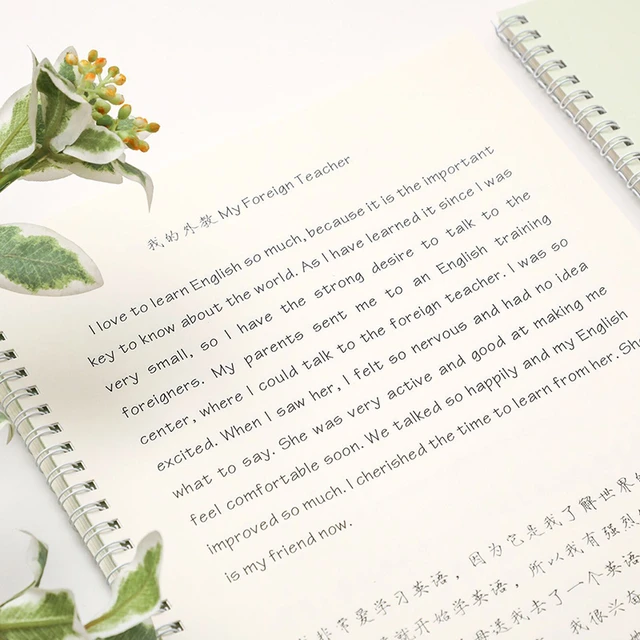 我的外教 My Foreign Teacher
I love to learn English so much, because it is the important
key to know about the world. As I have learned it since I was
very small, so I have the strong desire to talk to the
foreigners. My parents sent me to an English training
center, where I could talk to the foreign teacher. I was so
excited. When I saw her, I felt so nervous and had no idea
what to say. She was very active and good at making me
feel comfortable soon. We talked so happily and my English
improved so much. I cherished the time to learn from her. She
is my friend now.
我非常爱学习英语，因为它是我了解世界的
就开始学英语，所以我有强烈
送我去了一个英语
我很兴奋